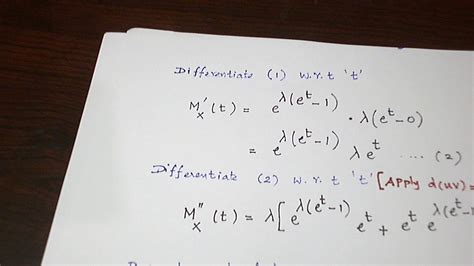 Differentiate (1) w.r.t 't'
M'ₓ(t) = e^{λ(e^t-1)} · λ(e^t-0)
= e^{λ(e^t-1)} λe^t .... (2)
Differentiate (2) w.r.t 't' [Apply d(uv)=
M''ₓ(t) = λ[e^{λ(e^t-1)} e^t + e^t e^{λ(e^t-1)}